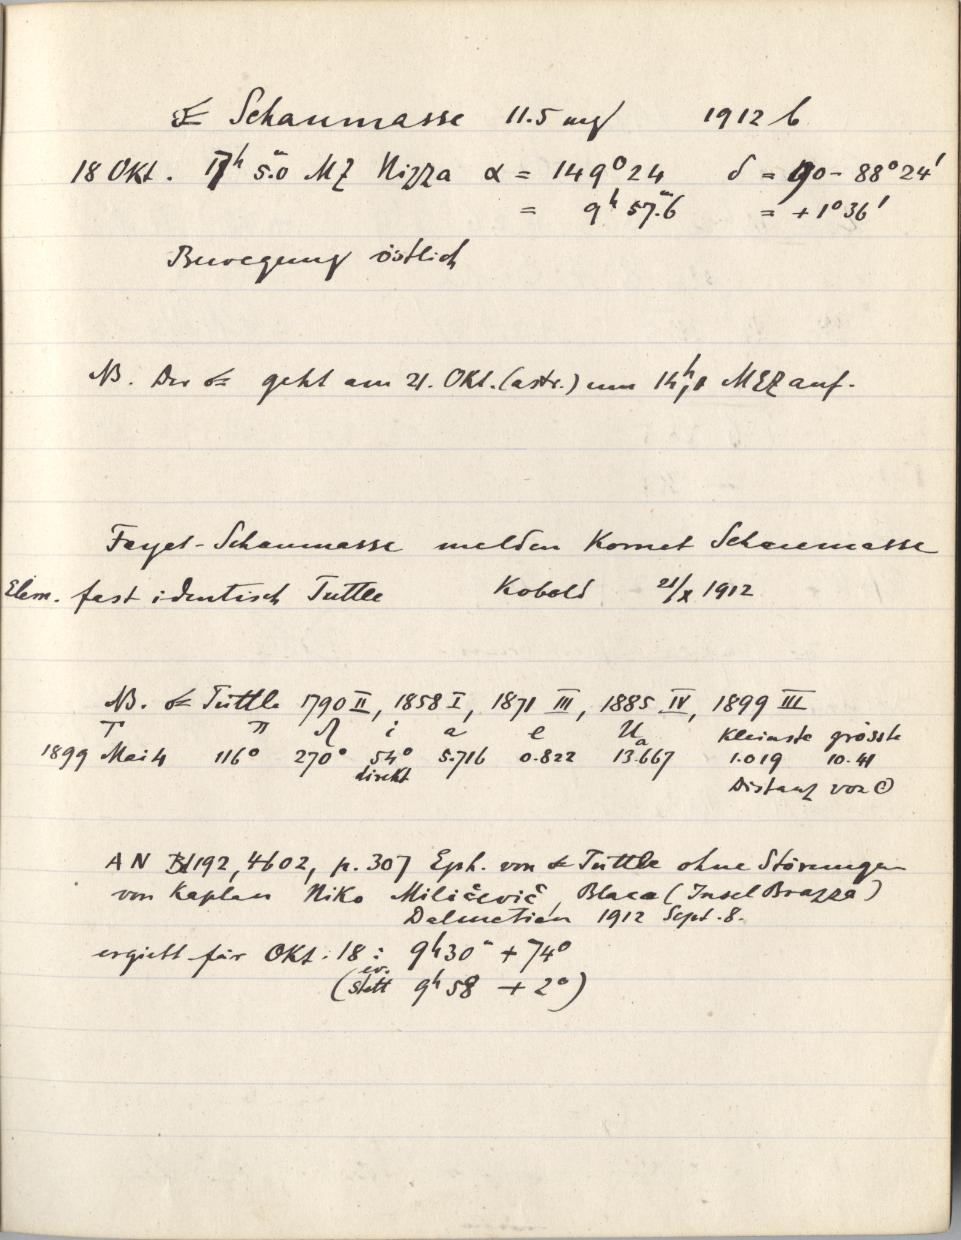 ☄ Schaumasse 11.5 mg 1912 b
18 Okt. 17ʰ 5ᵐ.0 MZ Nizza α = 149° 24 δ = 90 - 88° 24'
= 9ʰ 57ᵐ.6 = + 1° 36'
Bewegung östlich
NB. Der ☄ geht am 21. Okt. (astr.) um 14ʰ,1 MEZ auf.
Fayet-Schaumasse melden Komet Schaumasse
Elem. fast identisch Tuttle Kobold 21/X 1912
NB. ☄ Tuttle 1790 II, 1858 I, 1871 III, 1885 IV, 1899 III
T π ☊ i a e Ua Kleinste grösste
1899 Mai 4 116° 270° 54° 5.716 0.822 13.667 1.019 10.41
direkt Distanz von ☉
AN 192, 4602, p. 307 Eph. von ☄ Tuttle ohne Störungen
von Kaplan Niko Miličevič, Blaca (Insel Brazza)
Dalmatien 1912 Sept. 8.
ergiebt für Okt. 18: 9ʰ 30ᵐ + 74°
(statt 9ʰ 58 + 2°)